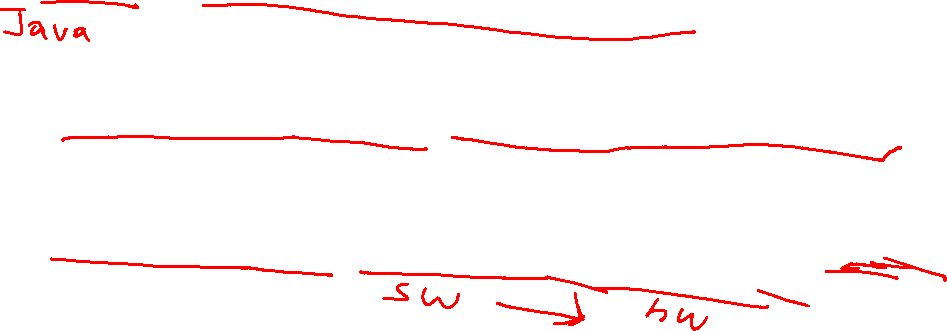 Java
SW
hW